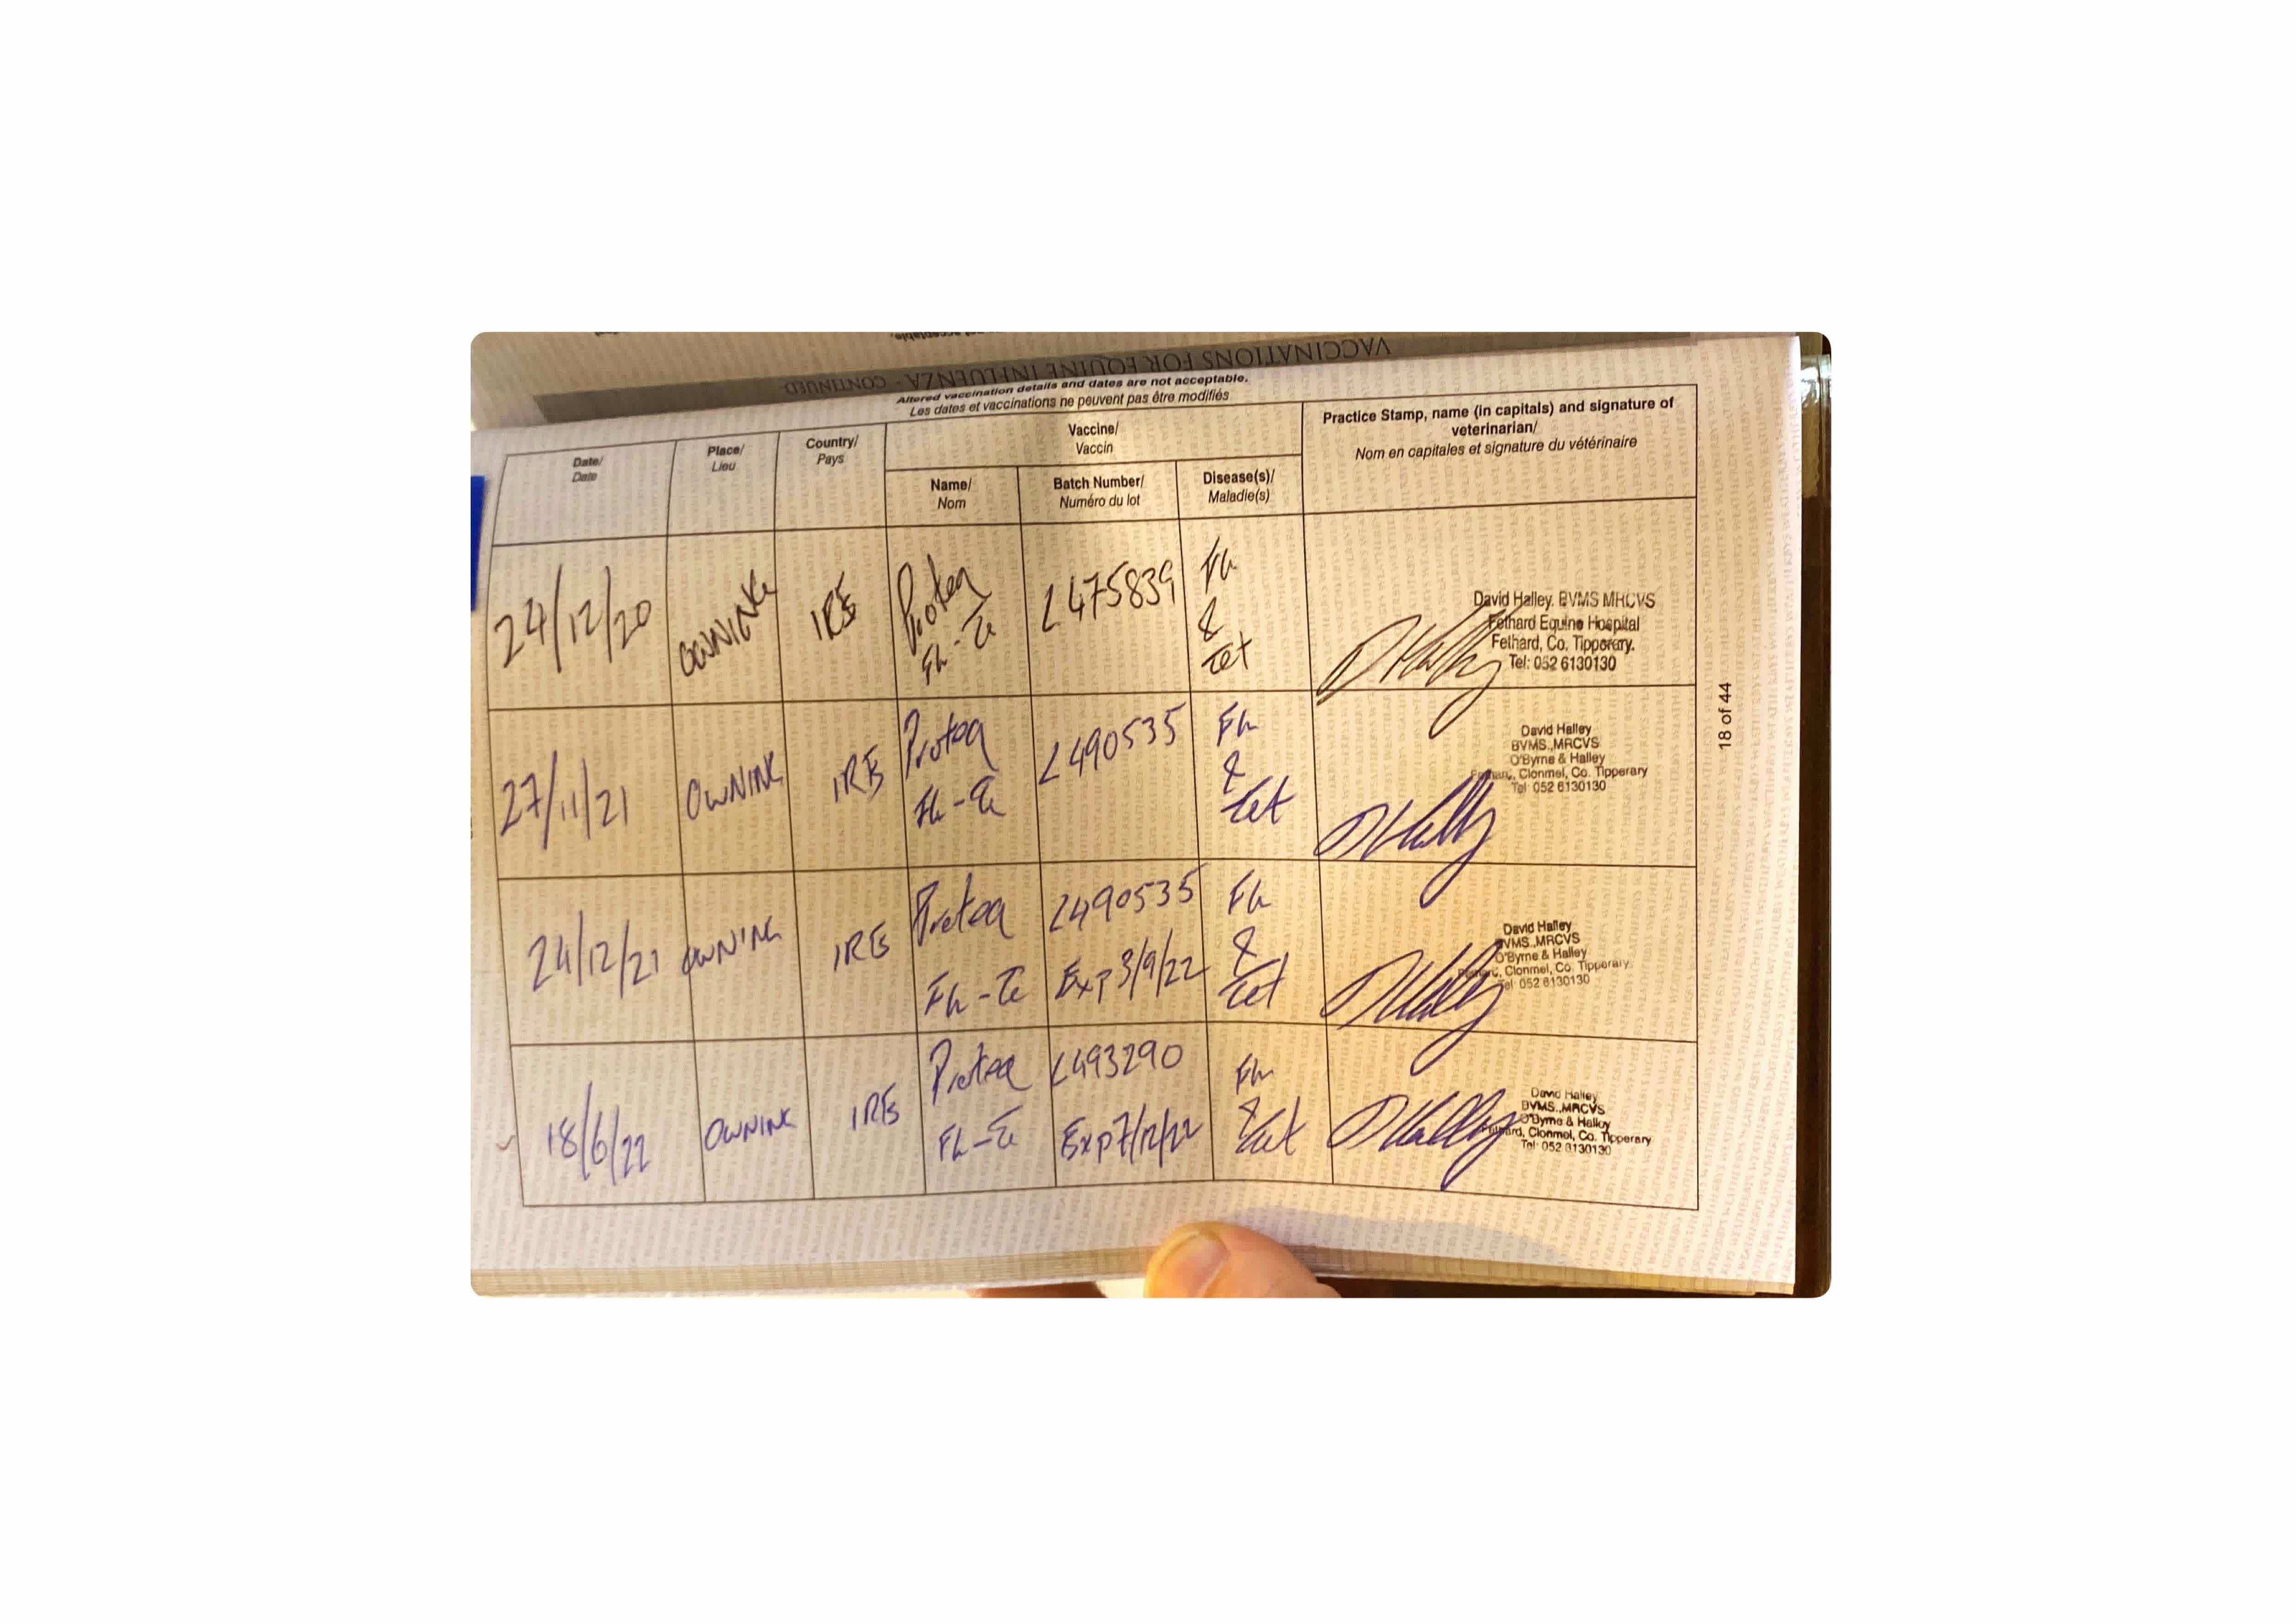 VACCINATIONS FOR EQUINE INFLUENZA - CONTINUED
Altered vaccination details and dates are not acceptable.
Les dates et vaccinations ne peuvent pas être modifiés
Date/
Date
Place/
Lieu
Country/
Pays
Vaccine/
Vaccin
Name/
Nom
Batch Number/
Numéro du lot
Disease(s)/
Maladie(s)
Practice Stamp, name (in capitals) and signature of
veterinarian/
Nom en capitales et signature du vétérinaire
24/12/20
OWNING
IRE
Proteq
Flu-Te
L475839
Flu
&
Tet
David Halley. BVMS MRCVS
Fethard Equine Hospital
Fethard, Co. Tipperary.
Tel: 052 6130130
27/11/21
OWNING
IRE
Proteq
Flu-Te
L490535
Flu
&
Tet
David Halley
BVMS.,MRCVS
O'Byrne & Halley
Clonmel, Co. Tipperary
Tel: 052 6130130
24/12/21
OWNING
IRE
Proteq
Flu-Te
L490535
Exp 3/9/22
Flu
&
Tet
David Halley
BVMS.,MRCVS
O'Byrne & Halley
Clonmel, Co. Tipperary
Tel: 052 6130130
18/6/22
OWNING
IRE
Proteq
Flu-Te
L493290
Exp 7/12/22
Flu
&
Tet
David Halley
BVMS.,MRCVS
O'Byrne & Halley
Clonmel, Co. Tipperary
Tel: 052 6130130
18 of 44